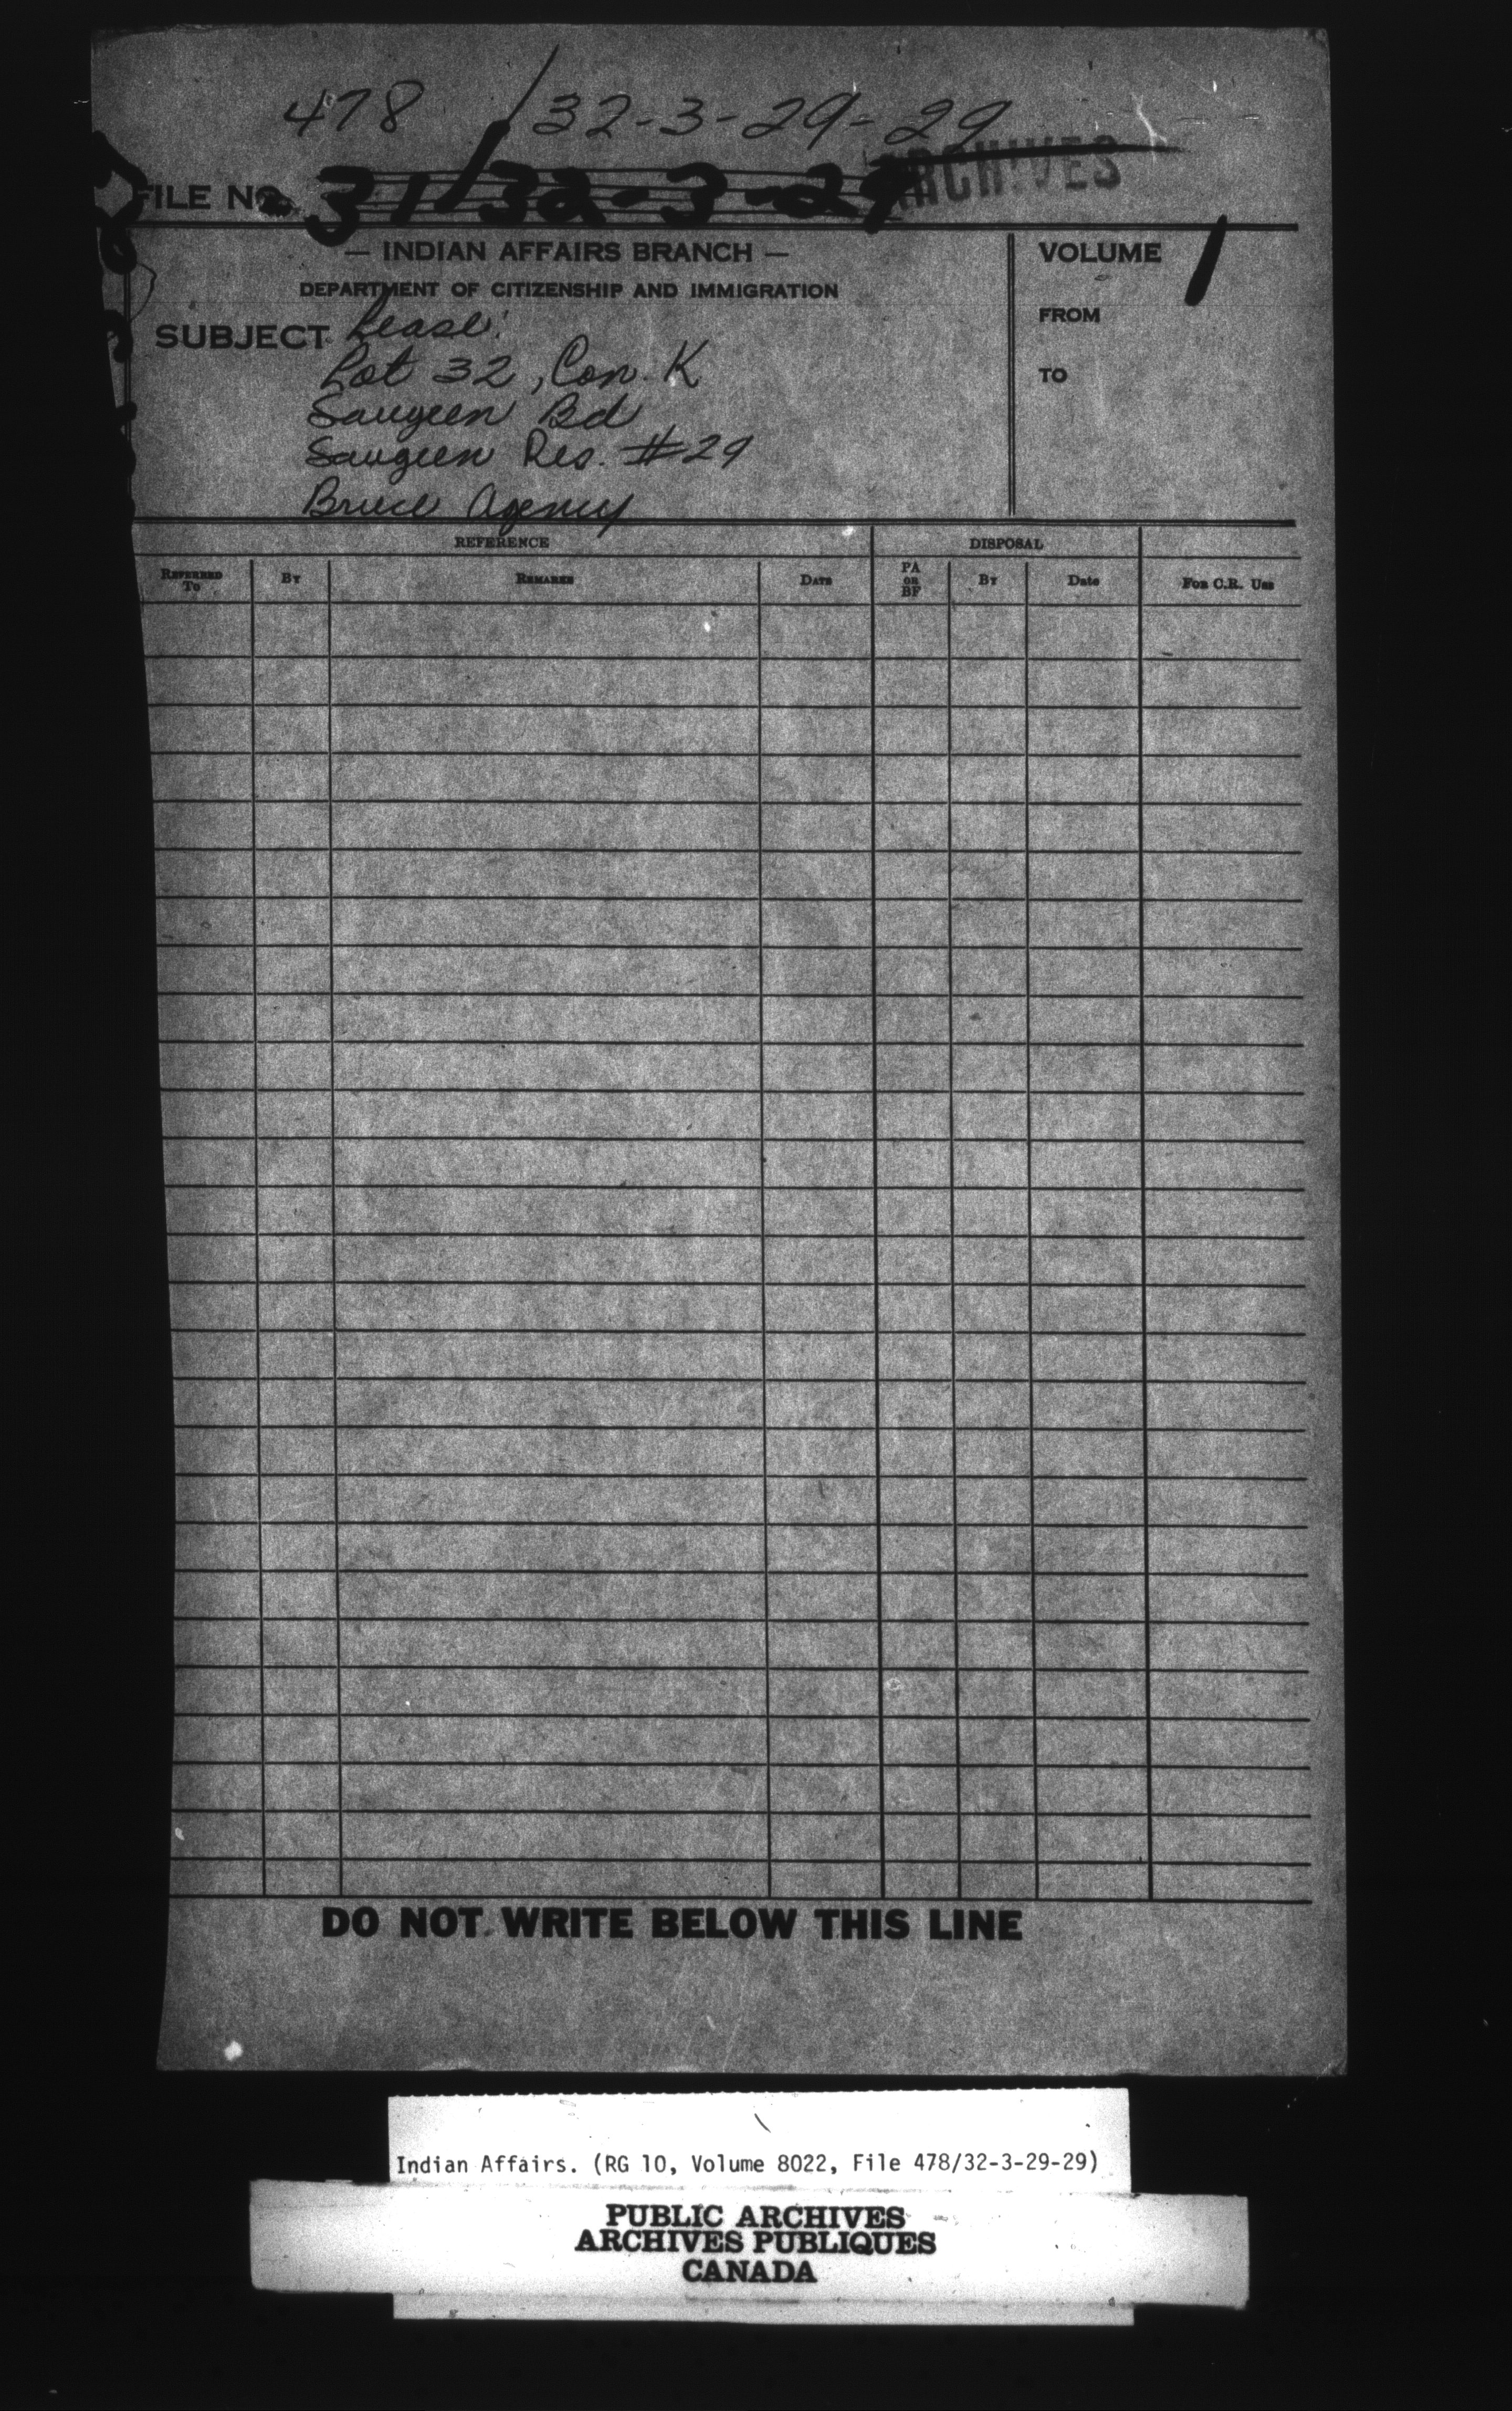 478/32-3-29-29
ARCHIVES
FILE No. 31/32-3-29
— INDIAN AFFAIRS BRANCH —
DEPARTMENT OF CITIZENSHIP AND IMMIGRATION
VOLUME 1
FROM
TO
SUBJECT Lease:
Lot 32, Con. K
Saugeen Bd
Saugeen Res. #29
Bruce Agency
REFERENCE DISPOSAL
REFERRED TO BY REMARKS DATE PA OR BF BY Date FOR C.R. USE
DO NOT WRITE BELOW THIS LINE
Indian Affairs. (RG 10, Volume 8022, File 478/32-3-29-29)
PUBLIC ARCHIVES
ARCHIVES PUBLIQUES
CANADA